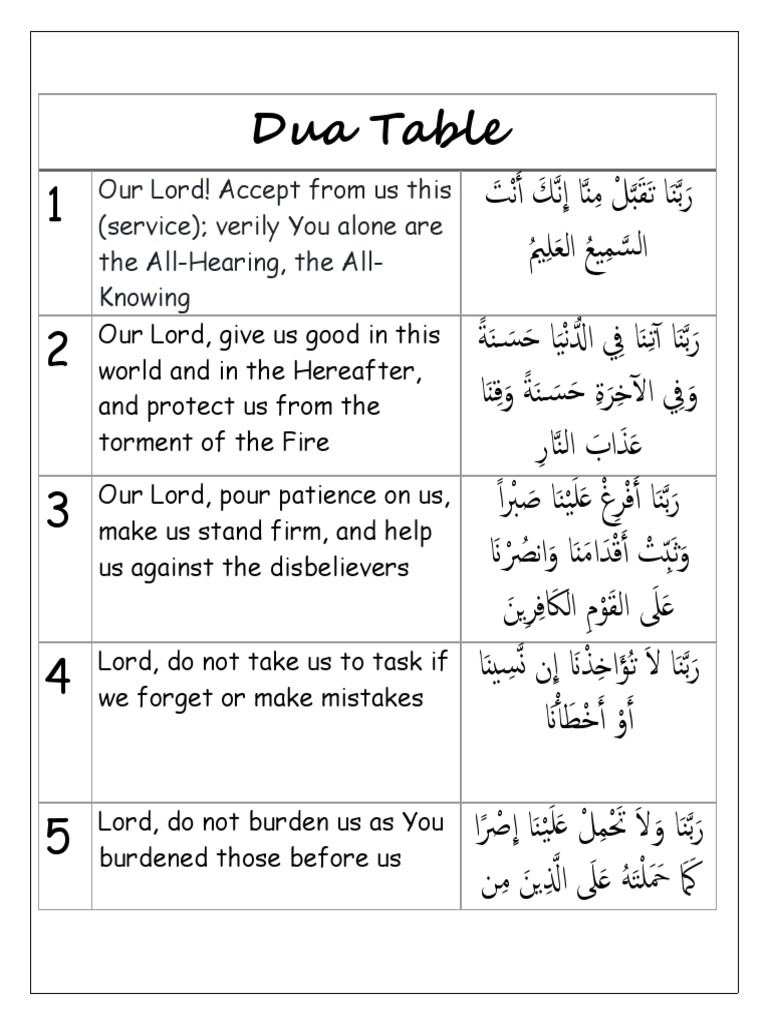 Dua Table
1
Our Lord! Accept from us this
(service); verily You alone are
the All-Hearing, the All-
Knowing
رَبَّنَا تَقَبَّلْ مِنَّا إِنَّكَ أَنْتَ
السَّمِيعُ العَلِيمُ
2
Our Lord, give us good in this
world and in the Hereafter,
and protect us from the
torment of the Fire
رَبَّنَا آتِنَا فِي الدُّنْيَا حَسَنَةً
وَفِي الآخِرَةِ حَسَنَةً وَقِنَا
عَذَابَ النَّارِ
3
Our Lord, pour patience on us,
make us stand firm, and help
us against the disbelievers
رَبَّنَا أَفْرِغْ عَلَيْنَا صَبْراً
وَثَبِّتْ أَقْدَامَنَا وَانصُرْنَا
عَلَى القَوْمِ الكَافِرِينَ
4
Lord, do not take us to task if
we forget or make mistakes
رَبَّنَا لاَ تُؤَاخِذْنَا إِن نَّسِينَا
أَوْ أَخْطَأْنَا
5
Lord, do not burden us as You
burdened those before us
رَبَّنَا وَلاَ تَحْمِلْ عَلَيْنَا إِصْرًا
كَمَا حَمَلْتَهُ عَلَى الَّذِينَ مِن